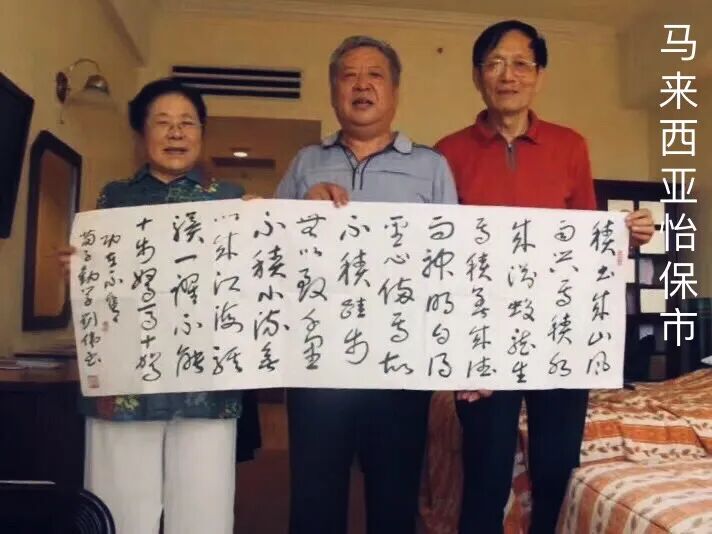 马来西亚怡保市
積土成山風
雨興焉積水
成渊蛟龍生
焉積善成德
而神明自得
聖心備焉故
不積跬步
無以致千里
不積小流無
以成江海骐
骥一躍不能
十步驽马十驾
功在不舍
荀子勸学刘伟书